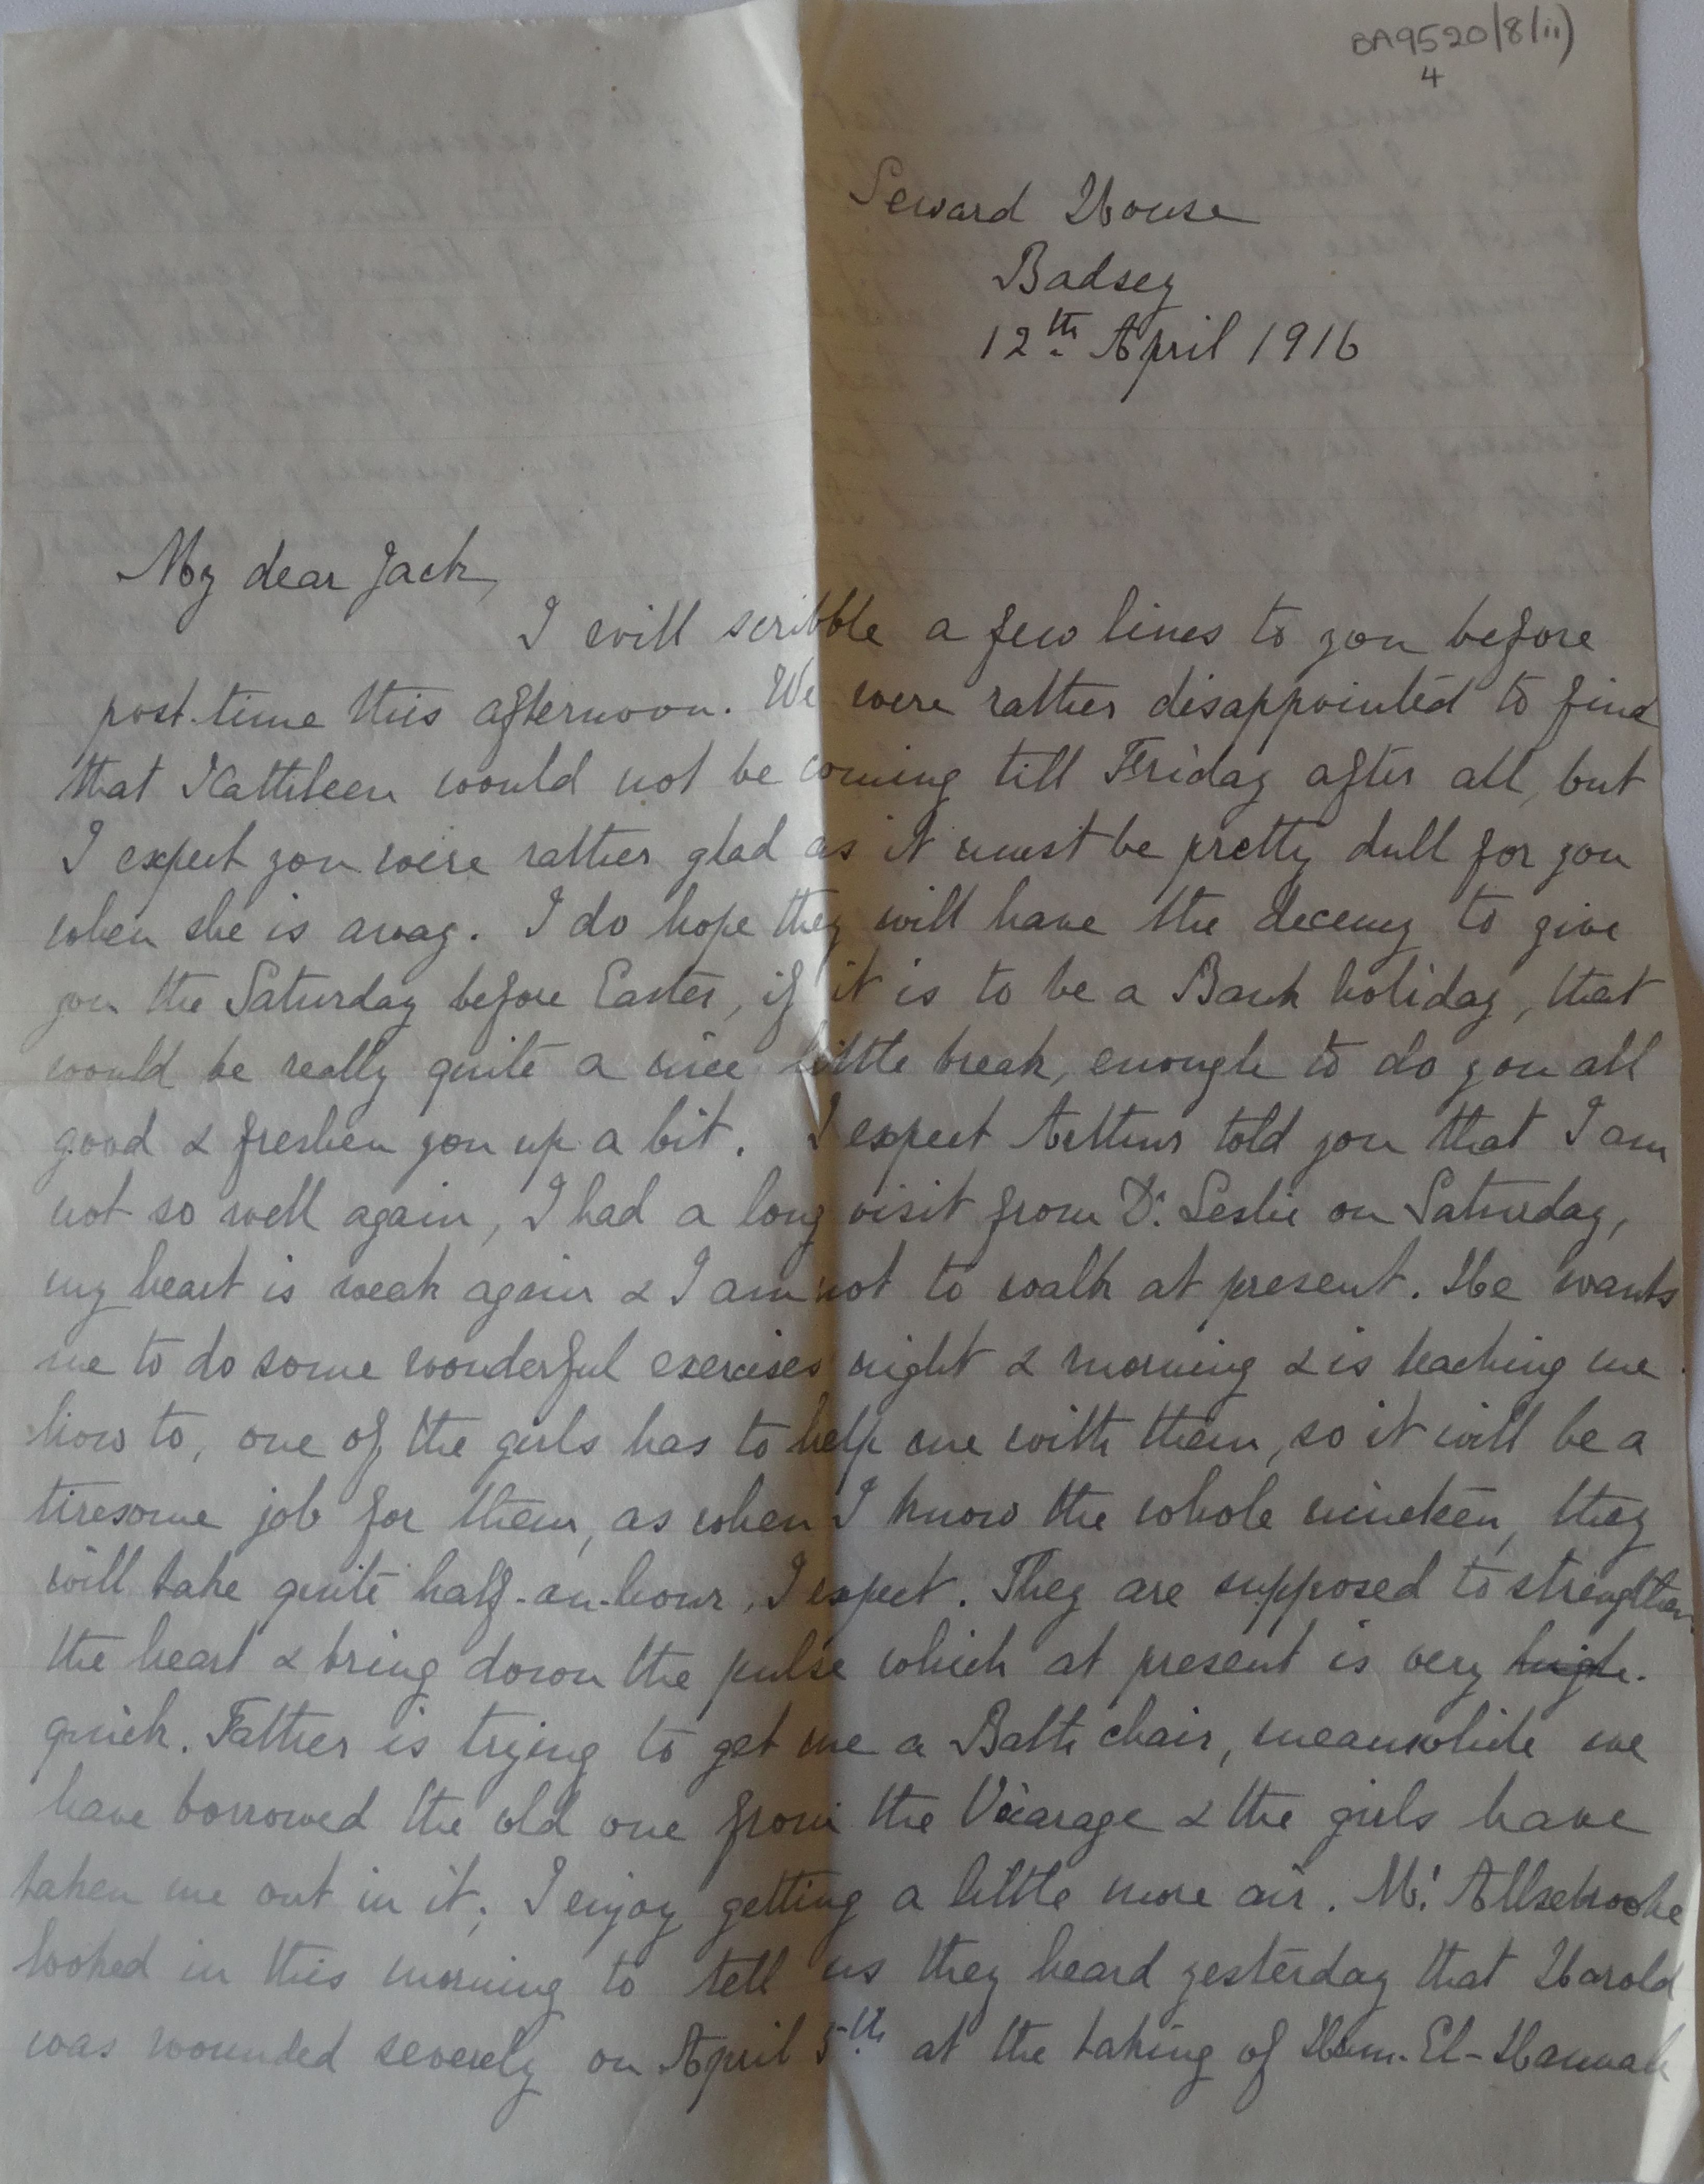 BA9520/8/(ii)
4
Seward House
Badsey
12th April 1916
My dear Jack,
I will scribble a few lines to you before
post-time this afternoon. We were rather disappointed to find
that Kathleen would not be coming till Friday after all, but
I expect you were rather glad as it must be pretty dull for you
when she is away. I do hope they will have the decency to give
you the Saturday before Easter, if it is to be a Bank holiday, that
would be really quite a nice little break, enough to do you all
good & freshen you up a bit. I expect Arthur told you that I am
not so well again, I had a long visit from Dr. Leslie on Saturday,
my heart is weak again & I am not to walk at present. He wants
me to do some wonderful exercises night & morning & is teaching me
how to, one of the girls has to help me with them, so it will be a
tiresome job for them, as when I know the whole nineteen, they
will take quite half-an-hour, I expect. They are supposed to strengthen
the heart & bring down the pulse which at present is very high.
quick. Father is trying to get me a Bath chair, meanwhile we
have borrowed the old one from the Vicarage & the girls have
taken me out in it; I enjoy getting a little more air. Mr. Allsebrooke
looked in this morning to tell us they heard yesterday that Harold
was wounded severely on April 5th at the taking of Hum-El-Hannah